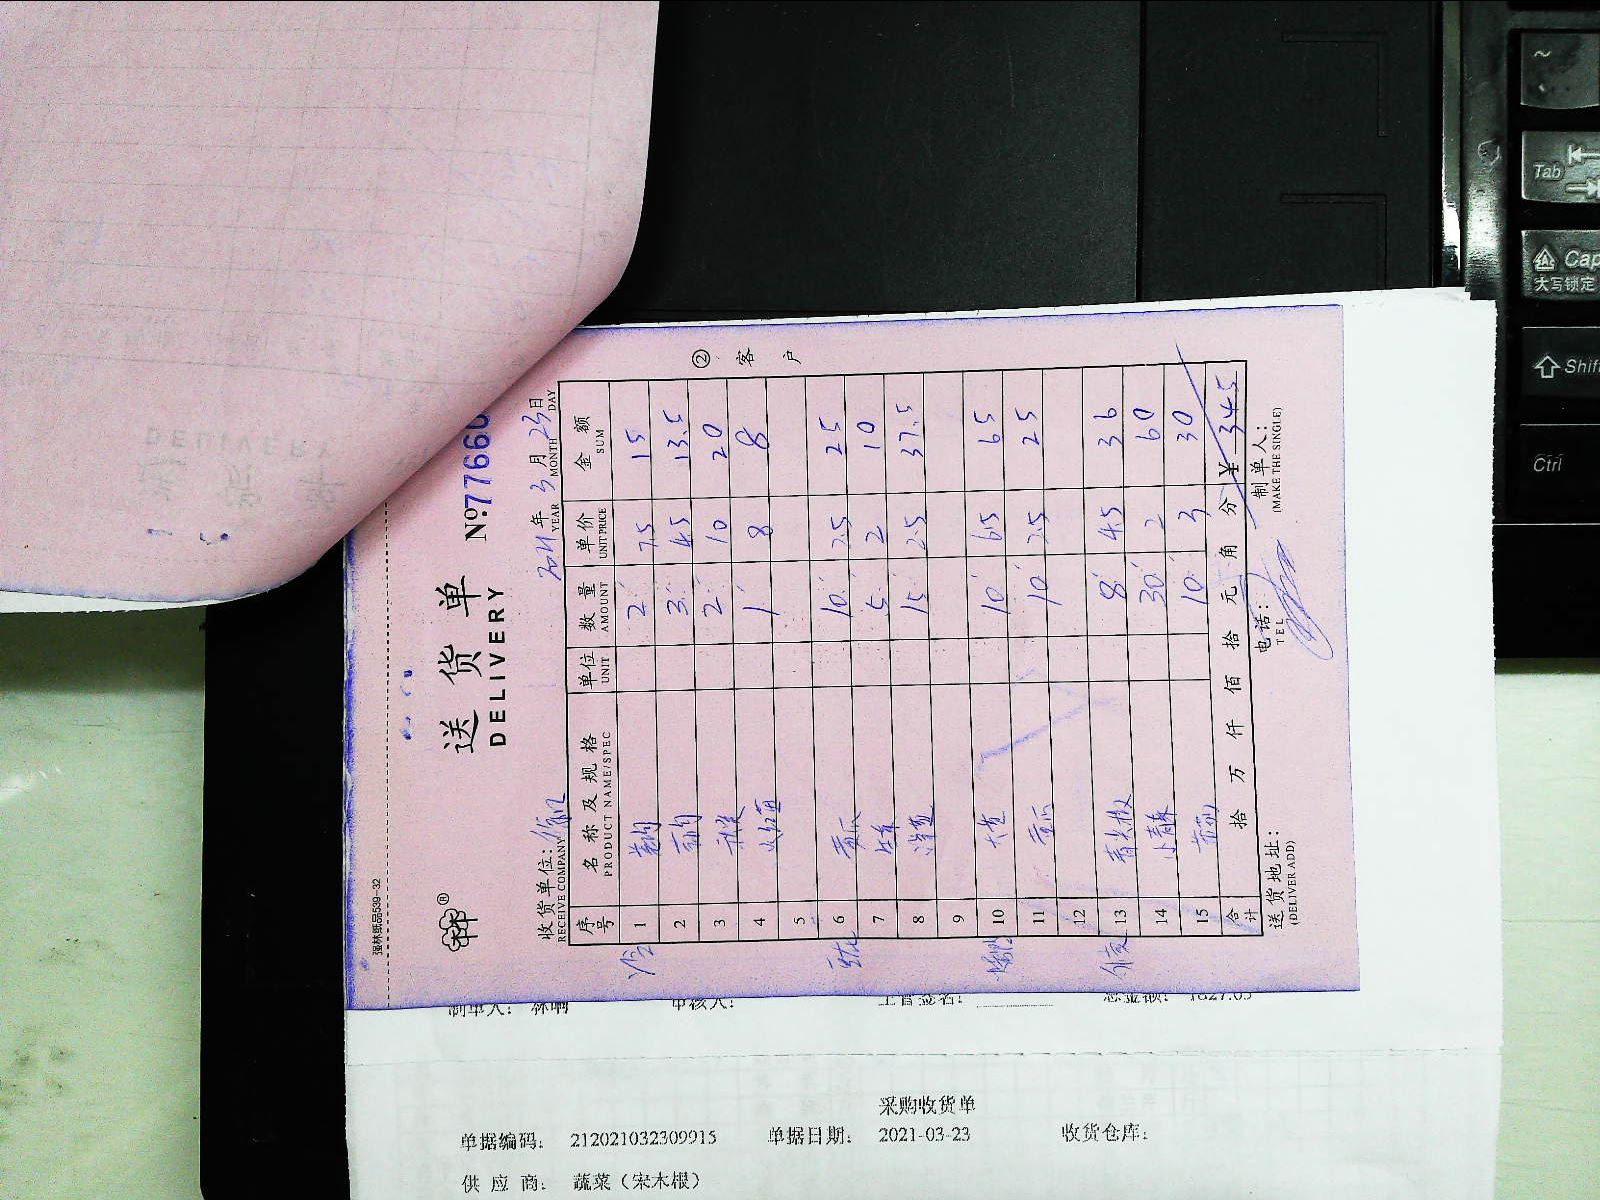 强林纸品539-32
®
送货单
DELIVERY
No 77660
收货单位：
RECEIVE COMPANY
2021年3月23日
YEAR MONTH DAY
序号 名称及规格 单位 数量 单价 金额
PRODUCT NAME/SPEC UNIT AMOUNT UNIT PRICE SUM
1 2 7.5 15
2 3 4.5 13.5
3 2 10 20
4 1 8 8
5
6 黄瓜 10 2.5 25
7 5 2 10
8 15 2.5 37.5
9
10 10 6.5 65
11 黄瓜 10 2.5 25
12
13 青尖椒 8 4.5 36
14 30 2 60
15 10 3 30
合计 拾 万 仟 佰 拾 元 角 分 ¥ 345
送货地址： 电话： 制单人：
(DELIVER ADD) TEL (MAKE THE SINGLE)
② 客户
制单人： 审核人： 主管签名： 总金额： 1827.05
采购收货单
单据编码： 212021032309915 单据日期： 2021-03-23 收货仓库：
供应商： 蔬菜（宋木根）
~
Tab
Cap
大写锁定
Shif
Ctrl